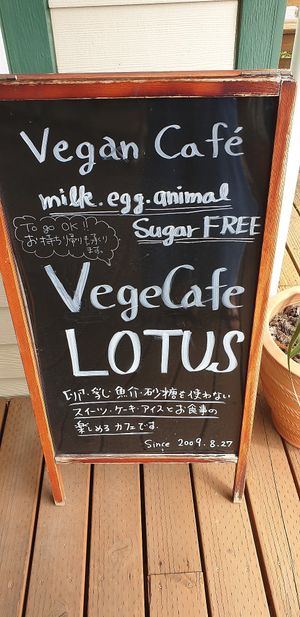 Vegan Café
milk.egg.animal
Sugar FREE
To go OK!!
お持ち帰りも承り
ます。
VegeCafe
LOTUS
卵・乳・魚介・砂糖を使わない
スイーツ・ケーキ・アイスとお食事の
楽しめるカフェです。
Since 2009.8.27